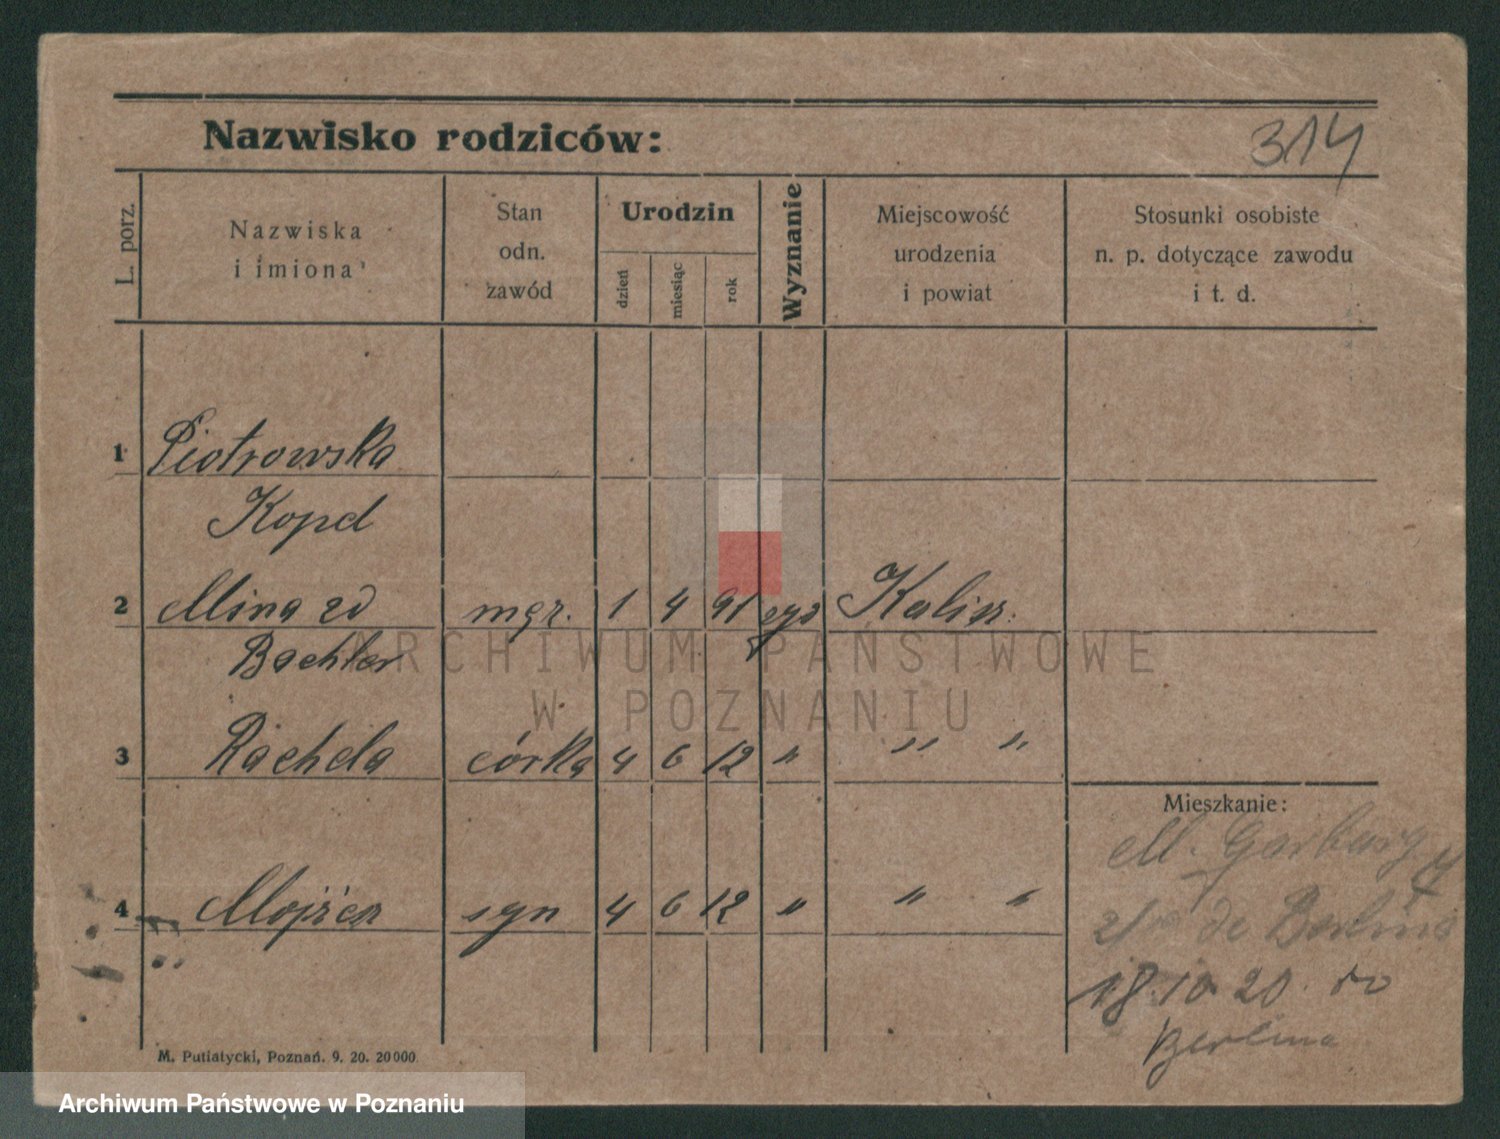 Nazwisko rodziców:
314
L. porz.
Nazwiska
i imiona
Stan
odn.
zawód
Urodzin
dzień
miesiąc
rok
Wyznanie
Miejscowość
urodzenia
i powiat
Stosunki osobiste
n. p. dotyczące zawodu
i t. d.
1 Piotrowska
Kopel
2 Mina zd 1 4 91 Kalisz.
Bachler
3 Rachela córka 4 6 12 " " "
Mieszkanie:
M. Garbary
4 Mojżesz syn 4 6 12 " " "
18.10.20. do
Berlina
M. Putiatycki, Poznań. 9. 20. 20000.
ARCHIWUM PAŃSTWOWE
W POZNANIU
Archiwum Państwowe w Poznaniu